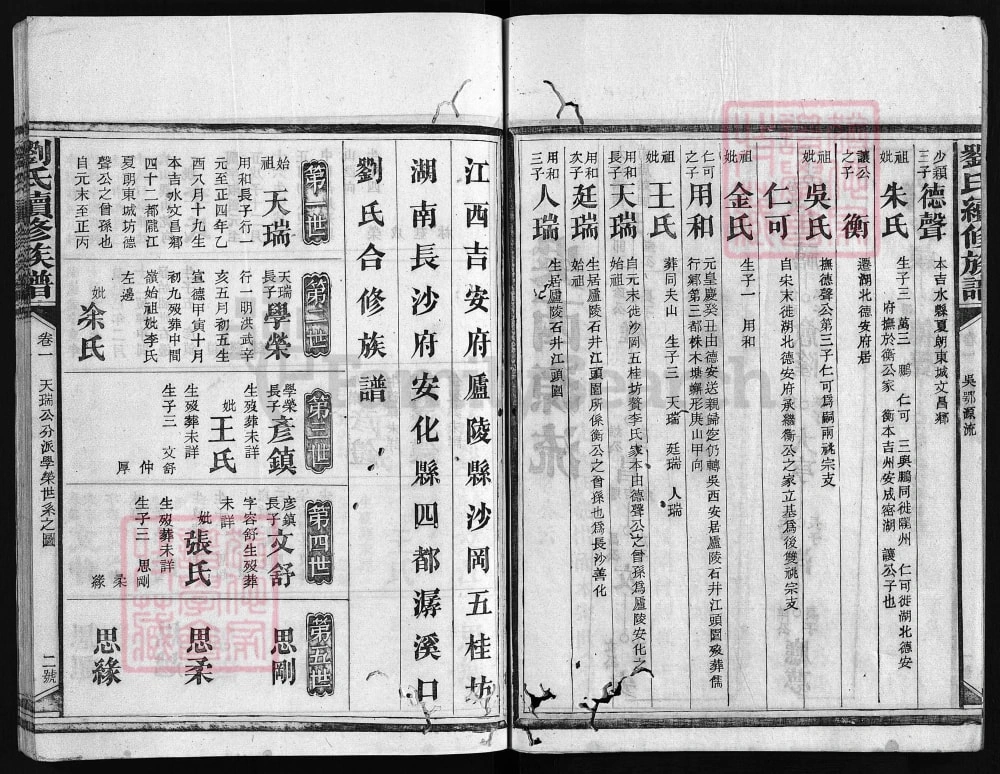 劉氏續修族譜
吳鄂源流
少穎三子
德聲
本吉水縣夏朗東城文昌鄉
祖妣
朱氏
生子三 萬三 鵬 仁可 三與鵬同徙 州 仁可徙湖北德安
府撫於衡公家 衡本吉州安成密湖 讓公子也
讓公之子
衡
遷湖北德安府居
祖妣
吳氏
撫德聲公第三子仁可為嗣兩祧宗支
仁可
自宋末徙湖北德安府承繼衡公之家立基為後雙祧宗支
祖妣
金氏
生子一 用和
仁可之子
用和
元皇慶癸丑由德安送親歸窆仍轉吳西安居廬陵石井江頭園歿葬儒
行鄉第三都株木塘螺形庚山甲向
祖妣
王氏
葬同夫山 生子三 天瑞 廷瑞 人瑞
用和長子
天瑞
自元末徙沙岡五桂坊贅李氏家本由德聲公之曾孫為廬陵安化之
始祖
用和次子
廷瑞
生居廬陵石井江頭園所係衡公之曾孫也為長沙善化
始祖
用和三子
人瑞
生居廬陵石井江頭園
江西吉安府廬陵縣沙岡五桂坊
湖南長沙府安化縣四都潺溪口
劉氏合修族譜
第一世
始祖
天瑞
用和長子行一
元至正四年乙
酉八月十九生
本吉水文昌鄉
四十二都隴江
夏朗東城坊德
聲公之曾孫也
自元末至正丙
第二世
天瑞長子
學榮
行一明洪武辛
亥五月初五生
宣德甲寅十月
初九歿葬中間
嶺始祖妣李氏
左邊
妣
余氏
第三世
學榮長子
彥鎮
生歿葬未詳
妣
王氏
生歿葬未詳
生子三 文舒
仲
厚
第四世
彥鎮長子
文舒
字容舒生歿葬
未詳
妣
張氏
生歿葬未詳
生子三 思剛
柔
緣
第五世
思剛
思柔
思緣
劉氏續修族譜
卷一
天瑞公分派學榮世系之圖
二號